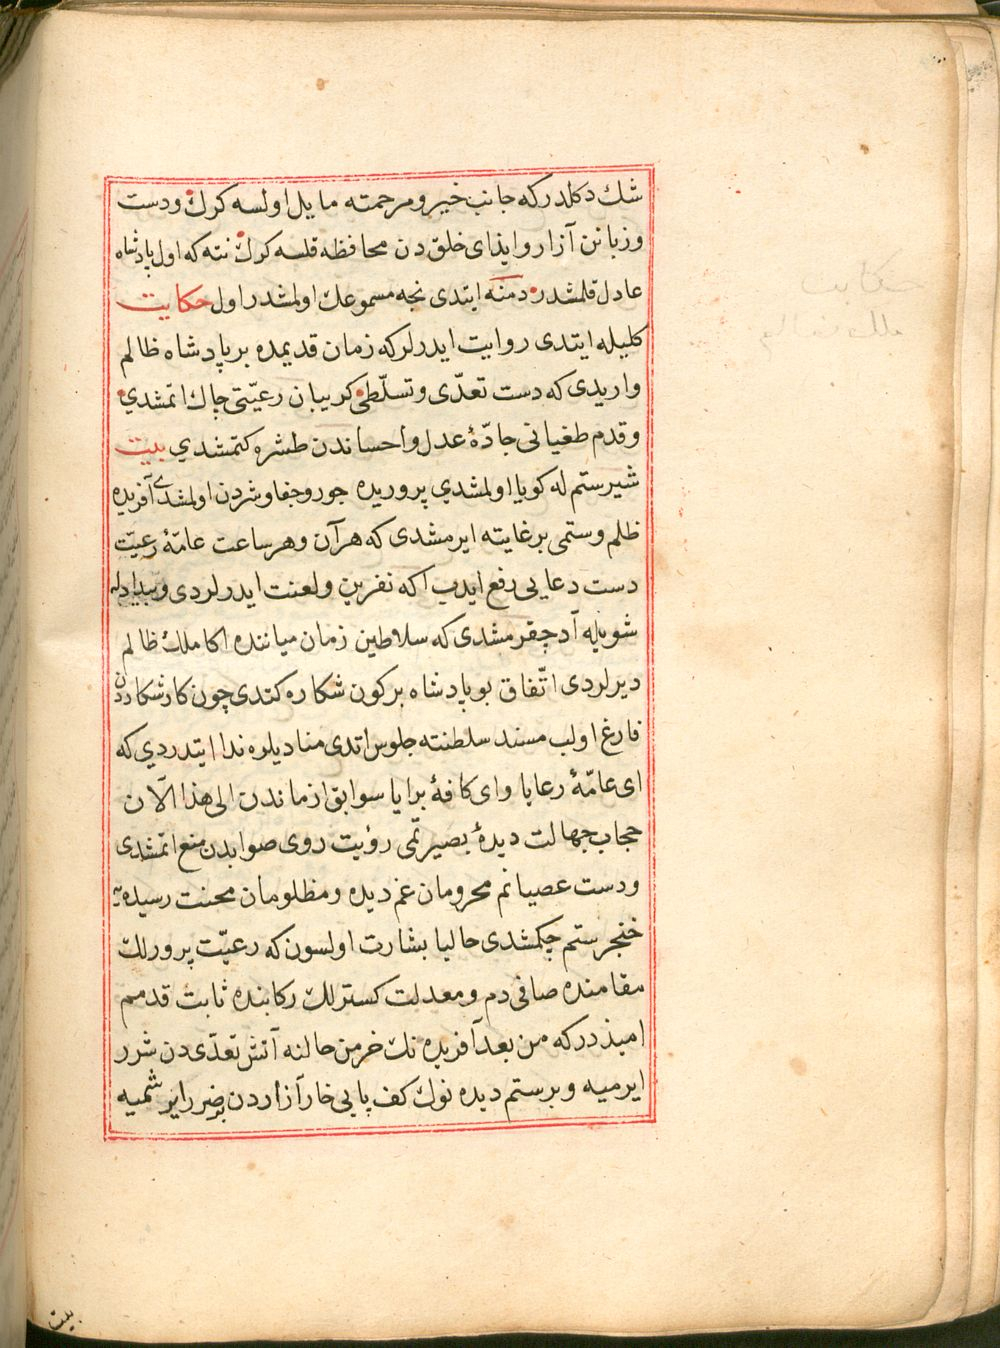 شك دكلدركه جانب خير و مرحمته مايل اولسه كرك ودست
وزبانن آزار وايذاى خلق دن محافظه قلسه كرك نته كه اول پادشاه
عادل قلمشدر دمنه ايتدى نجه مسموعك اولمشدر اول حكايت
كليله ايتدى روايت ايدرلر كه زمان قديمده بر پادشاه ظالم
واريدى كه دست تعدّى وتسلّطى كريبان رعيّتى چاك اتمشدي
وقدم طغيانى جادّهٔ عدل واحساندن طشره كتمشدي بيت
شير ستم له كويا اولمشدي پروريده جور وجفا وشردن اولمشدى آفريده
ظلم وستمى بر غايته ايرمشدى كه هر آن وهر ساعت عامّهٔ رعيّت
دست دعايى رفع ايدب اكه نفرين ولعنت ايدرلردى وبيدادله
شويله آد چقرمشدى كه سلاطين زمان ميانده اكا ملك ظالم
ديرلردى اتّفاق بو پادشاه بر كون شكاره كتدى چون كار شكاردن
فارغ اولب مسند سلطنته جلوس اتدى مناديلره ندا ايتدردي كه
اى عامّهٔ رعايا واى كافهٔ برايا سوابق ازماندن الى هذا الآن
حجاب جهالت ديدهٔ بصيرتمى رؤيت روى صوابدن منع اتمشدى
ودست عصيانم محرومان غم ديده ومظلومان محنت رسيده يه
خنجر ستم چكمشدى حاليا بشارت اولسون كه رعيّت پرورلك
مقامنده صافى دم ومعدلت كسترلك ركابنده ثابت قدمم
اميذدر كه من بعد آفريده نك خرمن حالنه آتش تعدّى دن شرر
ايرميه وبر ستم ديده نوك كف پايى خار آزاردن بر ضرر ايرشميه
بيت
حكايت